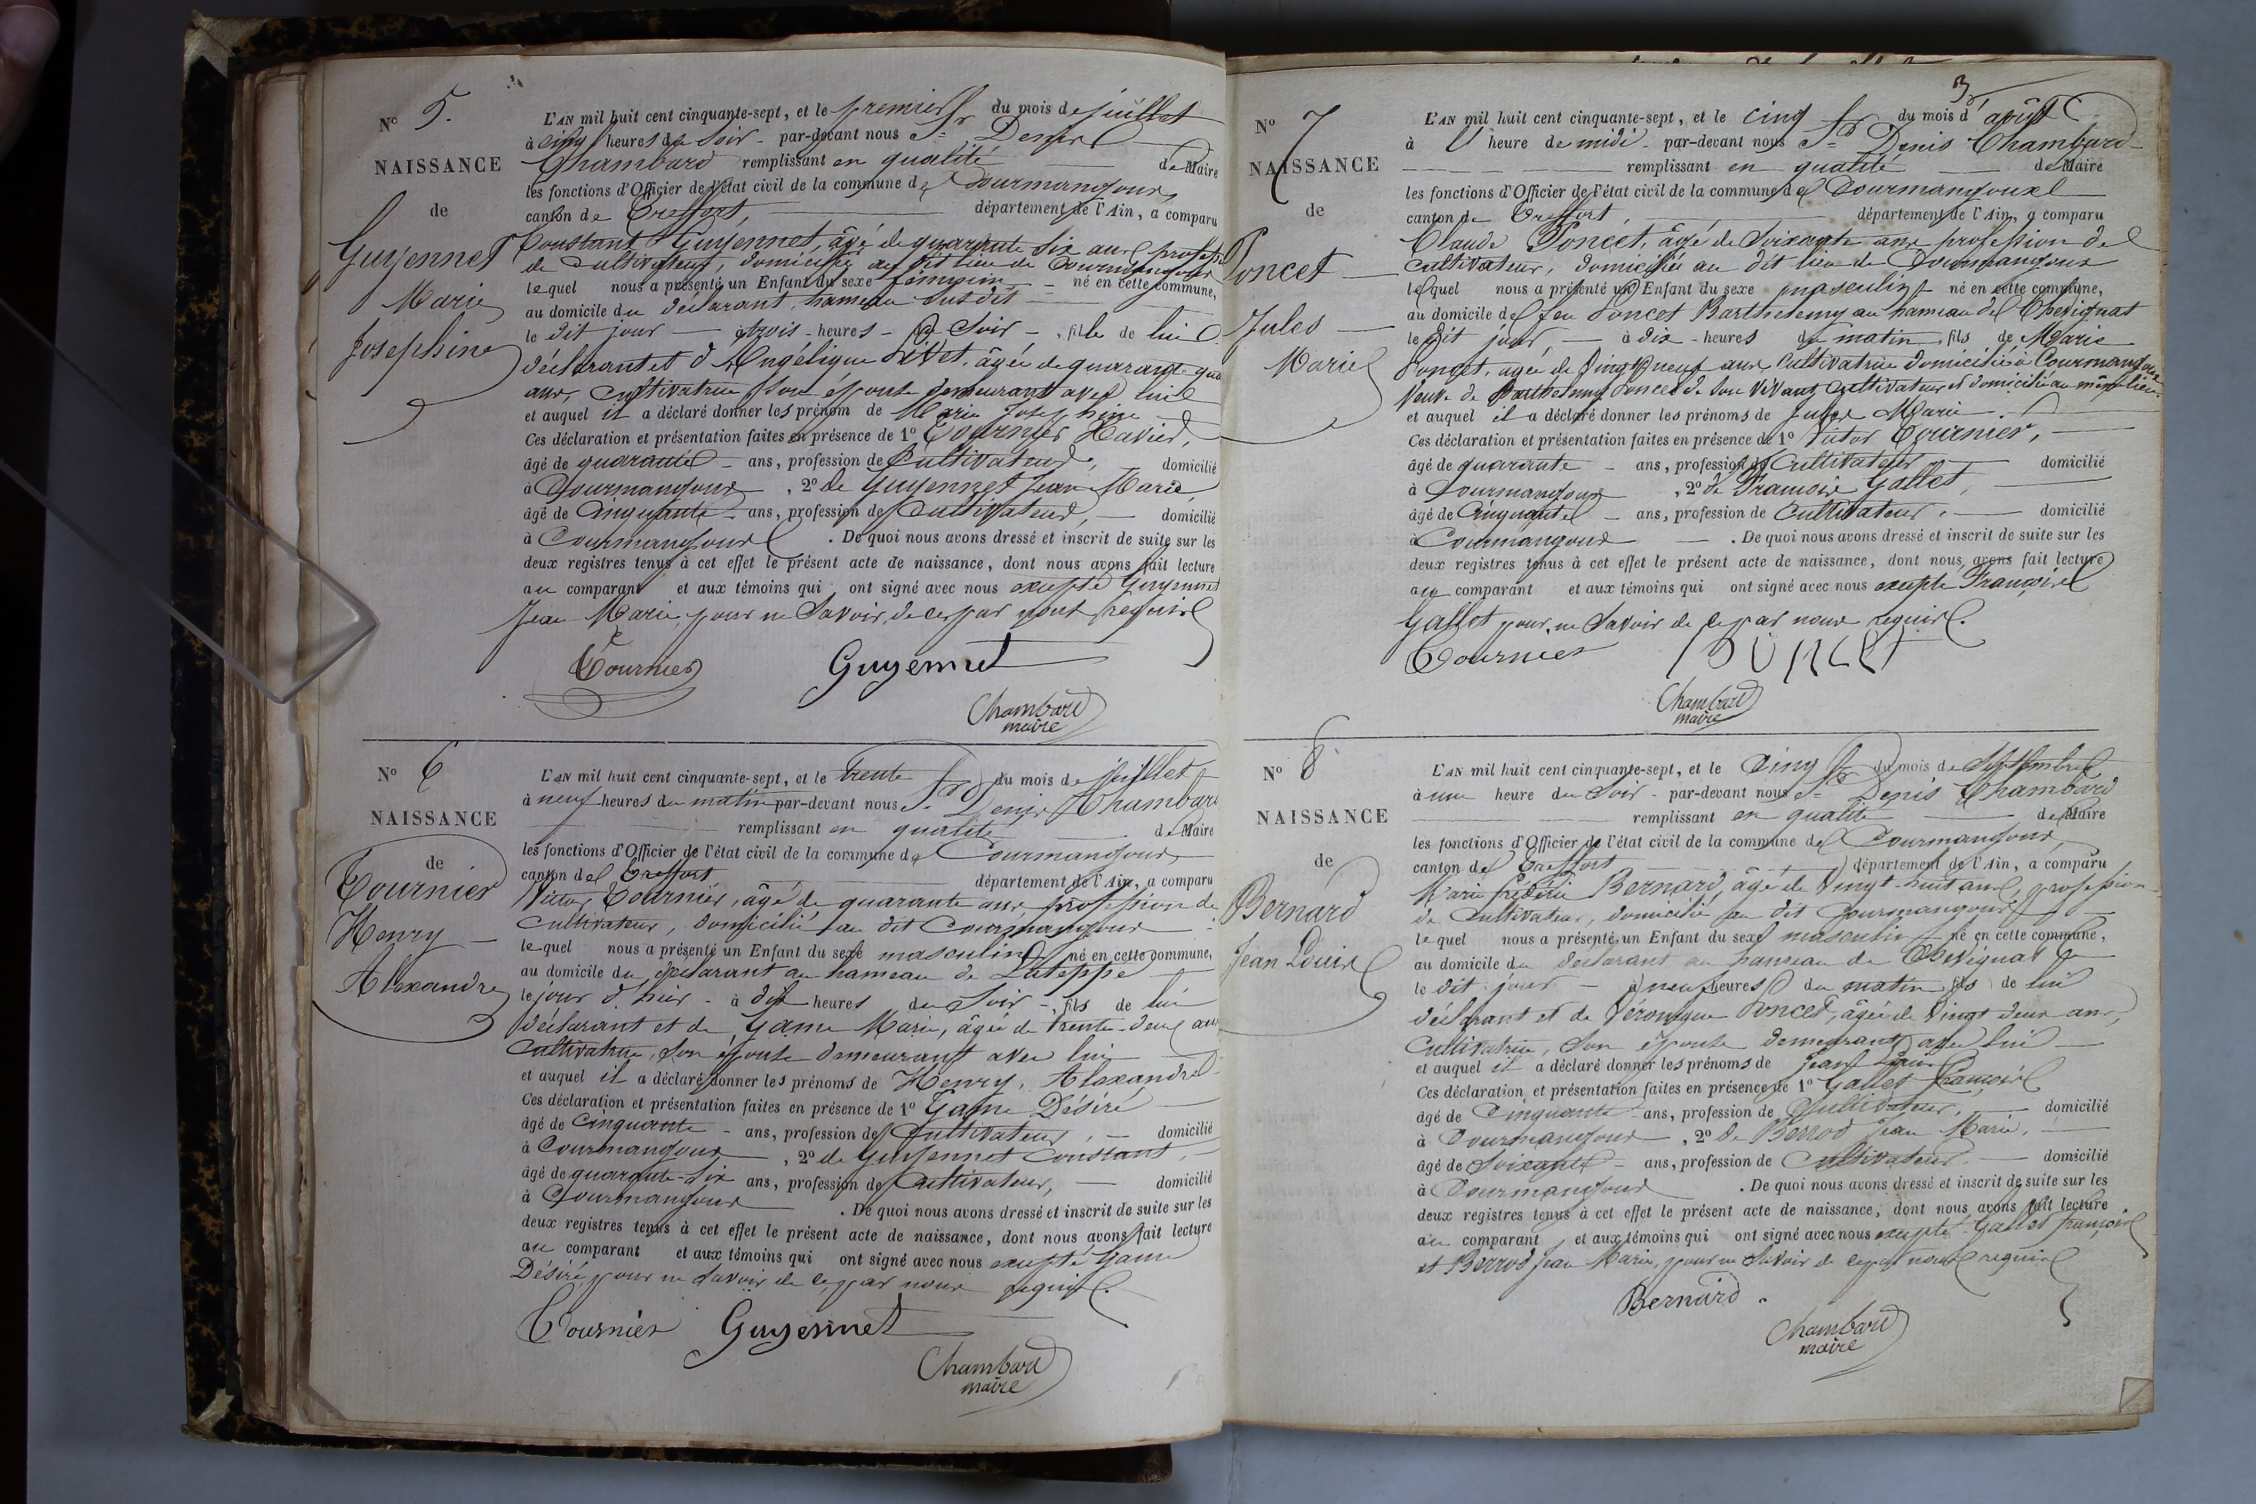 Nº 5.
NAISSANCE
de
Guyennet
Marie
Josephine
L'AN mil huit cent cinquante-sept, et le premier du mois de juillet
à cinq heures du soir par-devant nous Sr Denis
Chambard remplissant en qualité de Maire
les fonctions d'Officier de l'état civil de la commune de Courmangoux
canton de Treffort, département de l'Ain, a comparu
Constant Guyennet, âgé de quarante six ans, profession
de cultivateur, domicilié au dit lieu de Courmangoux
lequel nous a présenté un Enfant du sexe féminin né en cette commune,
au domicile du déclarant, hameau susdit
le dit jour à trois heures du soir, fille de lui
déclarant et d'Angélique Livet, âgée de quarante
ans, cultivatrice son épouse demeurant avec lui
et auquel il a déclaré donner les prénom de Marie Josephine
Ces déclaration et présentation faites en présence de 1º Tournier Xavier,
âgé de quarante ans, profession de Cultivateur, domicilié
à Courmangoux, 2º de Guyennet Jean Marie,
âgé de Cinquante ans, profession de Cultivateur, domicilié
à Courmangoux. De quoi nous avons dressé et inscrit de suite sur les
deux registres tenus à cet effet le présent acte de naissance, dont nous avons fait lecture
au comparant et aux témoins qui ont signé avec nous excepté Guyennet
Jean Marie, pour ne savoir, de ce par nous requis
Tournier Guyennet
Chambard
maire
Nº 6
NAISSANCE
de
Tournier
Henry
Alexandre
L'AN mil huit cent cinquante-sept, et le trente du mois de juillet
à neuf heures du matin par-devant nous Sr Denis Chambard
remplissant en qualité de Maire
les fonctions d'Officier de l'état civil de la commune de Courmangoux
canton de Treffort département de l'Ain, a comparu
Victor Tournier, âgé de quarante ans profession de
cultivateur, domicilié au dit Courmangoux
lequel nous a présenté un Enfant du sexe masculin né en cette commune,
au domicile du déclarant au hameau de
le jour d'hier à dix heures du soir, fils de lui
déclarant et de Game Marie, âgée de trente-deux ans
Cultivatrice, son épouse demeurant avec lui
et auquel il a déclaré donner les prénoms de Henry, Alexandre
Ces déclaration et présentation faites en présence de 1º Game Désiré
âgé de Cinquante ans, profession de Cultivateur, domicilié
à Courmangoux, 2º de Guyennet Constant,
âgé de quarante-six ans, profession de Cultivateur, domicilié
à Courmangoux. De quoi nous avons dressé et inscrit de suite sur les
deux registres tenus à cet effet le présent acte de naissance, dont nous avons fait lecture
au comparant et aux témoins qui ont signé avec nous excepté Game
Désiré, pour ne savoir de ce par nous requis.
Tournier Guyennet
Chambard
maire
3
Nº 7
NAISSANCE
de
Poncet
Jules
Marie
L'AN mil huit cent cinquante-sept, et le cinq du mois d'août
à heure de midi par-devant nous Sr Denis Chambard
remplissant en qualité de Maire
les fonctions d'Officier de l'état civil de la commune de Courmangoux
canton de Treffort, département de l'Ain, a comparu
Claude Poncet, âgé de soixante ans profession de
cultivateur, domicilié au dit lieu de Courmangoux
lequel nous a présenté un Enfant du sexe masculin né en cette commune,
au domicile de feu Poncet Barthelemy au hameau de Chevignat
le dit jour, à dix heures du matin, fils de Marie
Poncet, agée de vingt neuf ans Cultivatrice domiciliée à Courmangoux
Veuve de Barthelemy Poncet de son vivant Cultivateur et domicilié au même lieu
et auquel il a déclaré donner les prénoms de Jules Marie.
Ces déclaration et présentation faites en présence de 1º Victor Tournier,
âgé de quarante ans, profession de Cultivateur domicilié
à Courmangoux, 2º de François Gallet,
âgé de Cinquante ans, profession de Cultivateur, domicilié
à Courmangoux. De quoi nous avons dressé et inscrit de suite sur les
deux registres tenus à cet effet le présent acte de naissance, dont nous avons fait lecture
au comparant et aux témoins qui ont signé avec nous excepté François
Gallet pour ne savoir de ce par nous requis.
Tournier Poncet
Chambard
maire
Nº 8
NAISSANCE
de
Bernard
Jean Louis
L'AN mil huit cent cinquante-sept, et le Cinq du mois de Septembre
à une heure du soir par-devant nous Sr Denis Chambard
remplissant en qualité de Maire
les fonctions d'Officier de l'état civil de la commune de Courmangoux
canton de Treffort département de l'Ain, a comparu
Marie Frédéric Bernard, âgé de Vingt-huit ans, profession
de Cultivateur, domicilié au dit Courmangoux
lequel nous a présenté un Enfant du sexe masculin né en cette commune,
au domicile du déclarant au hameau de Chevignat
le dit jour à neuf heures du matin, fils de lui
déclarant et de Véronique Poncet, âgée de Vingt deux ans,
Cultivatrice, son épouse demeurant avec lui
et auquel il a déclaré donner les prénoms de Jean Louis
Ces déclaration et présentation faites en présence de 1º Gallet François
âgé de Cinquante ans, profession de Cultivateur, domicilié
à Courmangoux, 2º de Berrod Jean Marie,
âgé de Soixante ans, profession de Cultivateur domicilié
à Courmangoux. De quoi nous avons dressé et inscrit de suite sur les
deux registres tenus à cet effet le présent acte de naissance, dont nous avons fait lecture
au comparant et aux témoins qui ont signé avec nous excepté Gallet François
et Berrod Jean Marie, pour ne savoir de ce par nous requis
Bernard.
Chambard
maire